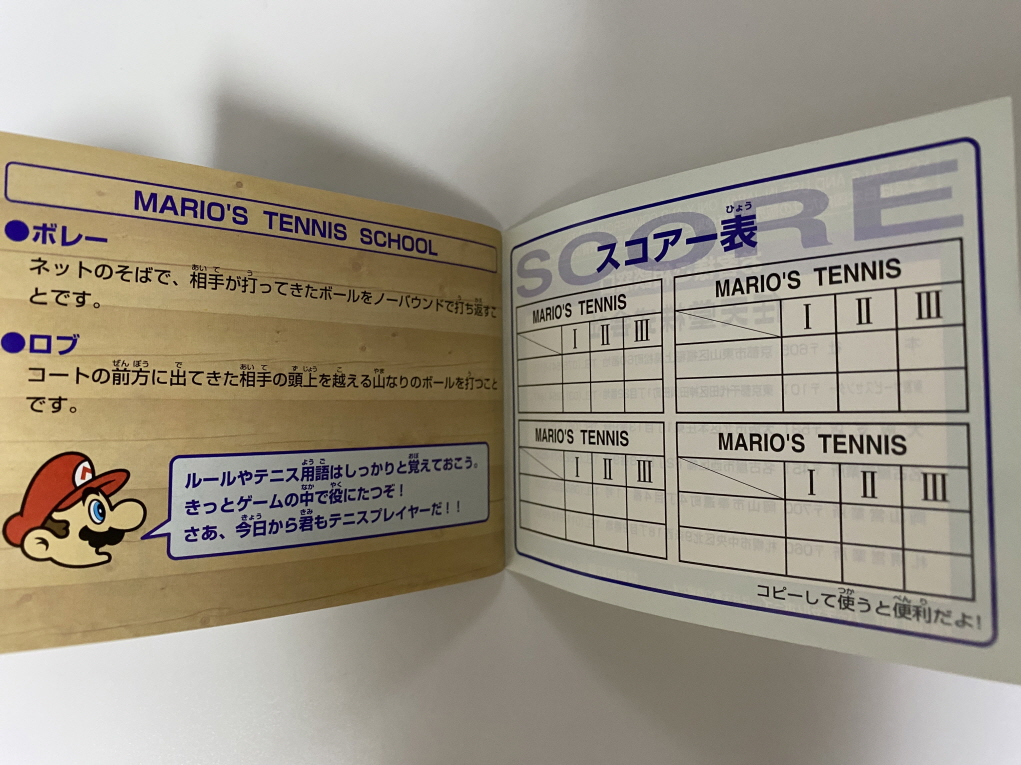 MARIO'S TENNIS SCHOOL
●ボレー
ネットのそばで、相手が打ってきたボールをノーバウンドで打ち返すこ
とです。
●ロブ
コートの前方に出てきた相手の頭上を越える山なりのボールを打つこと
です。
ルールやテニス用語はしっかりと覚えておこう。
きっとゲームの中で役にたつぞ!
さあ、今日から君もテニスプレイヤーだ!!
SCORE
スコアー表
MARIO'S TENNIS
I II III
MARIO'S TENNIS
I II III
MARIO'S TENNIS
I II III
MARIO'S TENNIS
I II III
コピーして使うと便利だよ!